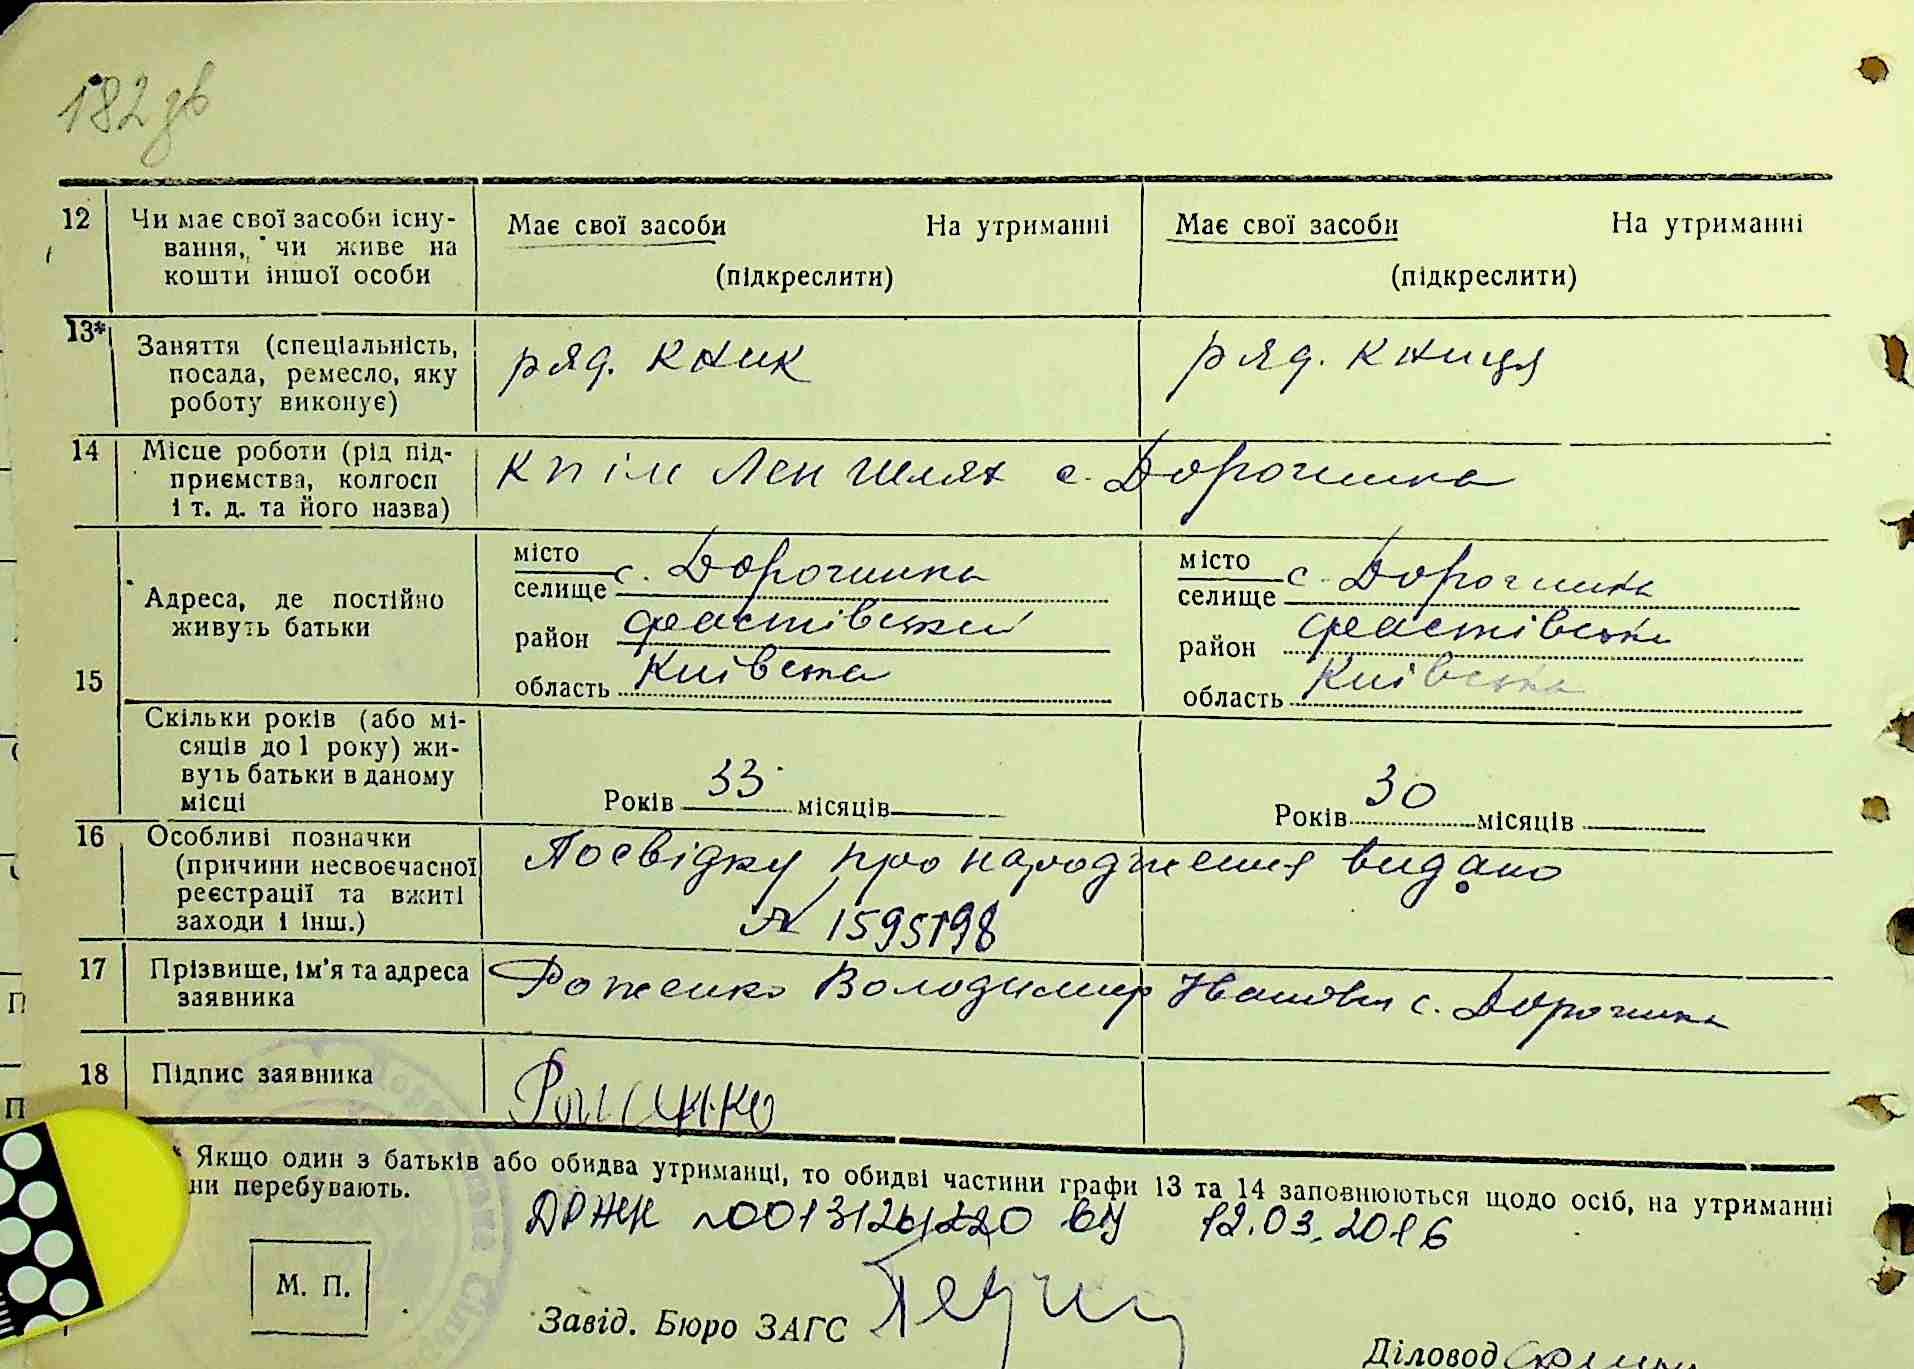 182 зв
12 Чи має свої засоби існу- Має свої засоби На утриманні Має свої засоби На утриманні
вання, чи живе на
кошти іншої особи (підкреслити) (підкреслити)
13* Заняття (спеціальність, ряд. к-ник ряд. к-ниця
посада, ремесло, яку
роботу виконує)
14 Місце роботи (рід під- Лен шлях с. Дорогинка
приємства, колгосп
і т. д. та його назва)
15 Адреса, де постійно живуть батьки
місто
селище с. Дорогинка
район Фастівський
область Київська
місто
селище с. Дорогинка
район Фастівськи
область Київська
Скільки років (або мі-
сяців до 1 року) жи-
вуть батьки в даному
місці Років 33 місяців Років 30 місяців
16 Особливі позначки Посвідку про народження видано
(причини несвоєчасної
реєстрації та вжиті № 1595198
заходи і інш.)
17 Прізвище, ім'я та адреса Роженко Володимир Іванович с. Дорогинка
заявника
18 Підпис заявника
* Якщо один з батьків або обидва утриманці, то обидві частини графи 13 та 14 заповнюються щодо осіб, на утриманні
ни перебувають.
12.03.2016
М. П.
Завід. Бюро ЗАГС
Діловод